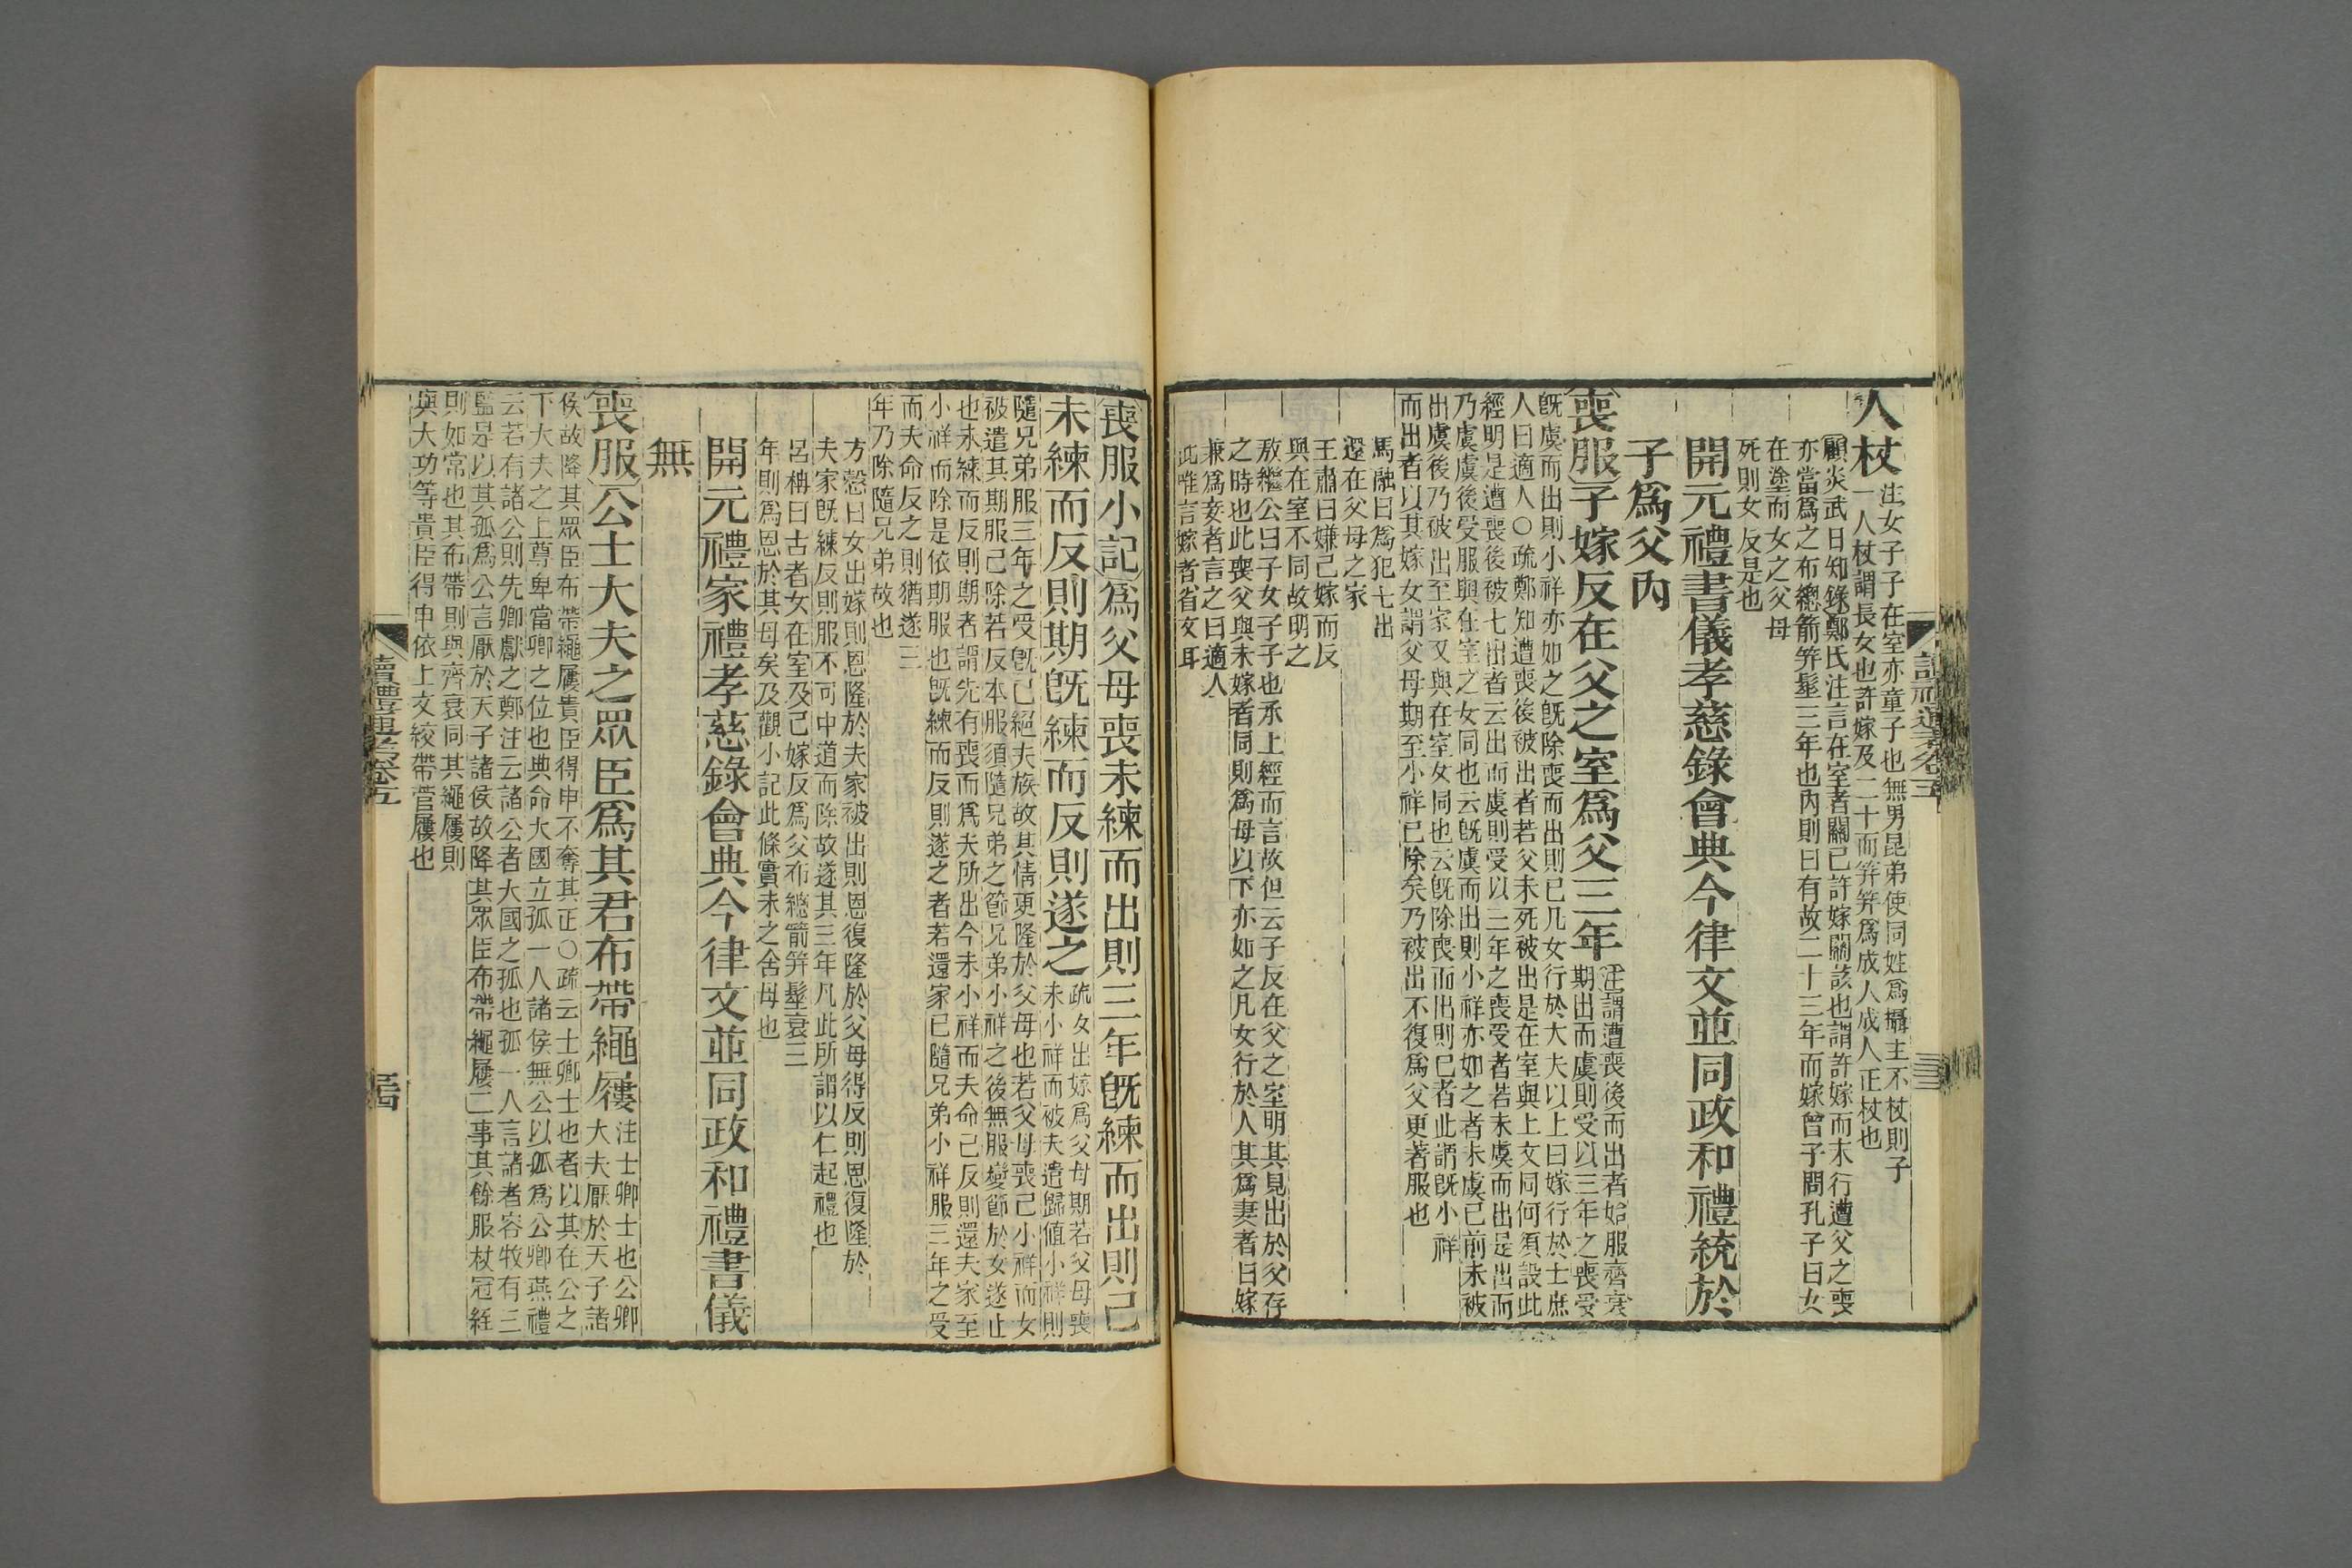 人杖注女子子在室亦童子也無男昆弟使同姓爲攝主不杖則子
一人杖謂長女也許嫁及二十而笄笄爲成人成人正杖也
顧炎武日知錄鄭氏注言在室者關已許嫁關該也謂許嫁而未行遭父之喪
亦當爲之布總箭笄髽三年也內則曰有故二十三年而嫁曾子問孔子曰女
在塗而女之父母
死則女反是也
開元禮書儀孝慈錄會典今律文並同政和禮統於
子爲父內
喪服子嫁反在父之室爲父三年注謂遭喪後而出者始服齊衰
期出而虞則受以三年之喪受
旣虞而出則小祥亦如之旣除喪而出則已凡女行於大夫以上曰嫁行於士庶
人曰適人○疏鄭知遭喪後被出者若父未死被出是在室與上文同何須設此
經明是遭喪後被七出者云出而虞則受以三年之喪受者若未虞而出是出而
乃虞虞後受服與在室之女同也云旣虞而出則小祥亦如之者未虞已前未被
出虞後乃被出至家又與在室女同也云旣除喪而出則已者此謂旣小祥
而出者以其嫁女謂父母期至小祥已除矣乃被出不復爲父更著服也
馬融曰爲犯七出
還在父母之家
王肅曰嫌已嫁而反
與在室不同故明之
敖繼公曰子女子子也承上經而言故但云子反在父之室明其見出於父存
之時也此喪父與未嫁者同則爲母以下亦如之凡女行於人其爲妻者曰嫁
兼爲妾者言之曰適人
此唯言嫁者省文耳
讀禮通考卷五
喪服小記爲父母喪未練而出則三年旣練而出則已
未練而反則期旣練而反則遂之疏女出嫁爲父母期若父母喪
未小祥而被夫遣歸値小祥則
隨兄弟服三年之受旣已絕夫族故其情更隆於父母也若父母喪已小祥而女
被遣其期服已除若反本服須隨兄弟之節兄弟小祥之後無服變節於女遂止
也未練而反則期者謂先有喪而爲夫所出今未小祥而夫命已反則還夫家至
小祥而除是依期服也旣練而反則遂之者若還家已隨兄弟小祥服三年之受
而夫命反之則猶遂三
年乃除隨兄弟故也
方慤曰女出嫁則恩隆於夫家被出則恩復隆於父母得反則恩復隆於
夫家旣練反則服不可中道而除故遂其三年凡此所謂以仁起禮也
呂柟曰古者女在室及已嫁反爲父布總箭笄髽衰三
年則爲恩於其母矣及觀小記此條實未之舍母也
開元禮家禮孝慈錄會典今律文並同政和禮書儀
無
喪服公士大夫之眾臣爲其君布帶繩屨注士卿士也公卿
大夫厭於天子諸
侯故降其眾臣布帶繩屨貴臣得申不奪其正○疏云士卿士也者以其在公之
下大夫之上尊卑當卿之位也典命大國立孤一人諸侯無公以孤爲公卿燕禮
云若有諸公則先卿獻之鄭注云諸公者大國之孤也孤一人言諸者容牧有三
監是以其孤爲公言厭於天子諸侯故降其眾臣布帶繩屨二事其餘服杖冠絰
則如常也其布帶則與齊衰同其繩屨則
與大功等貴臣得申依上文絞帶菅屨也
讀禮通考卷五